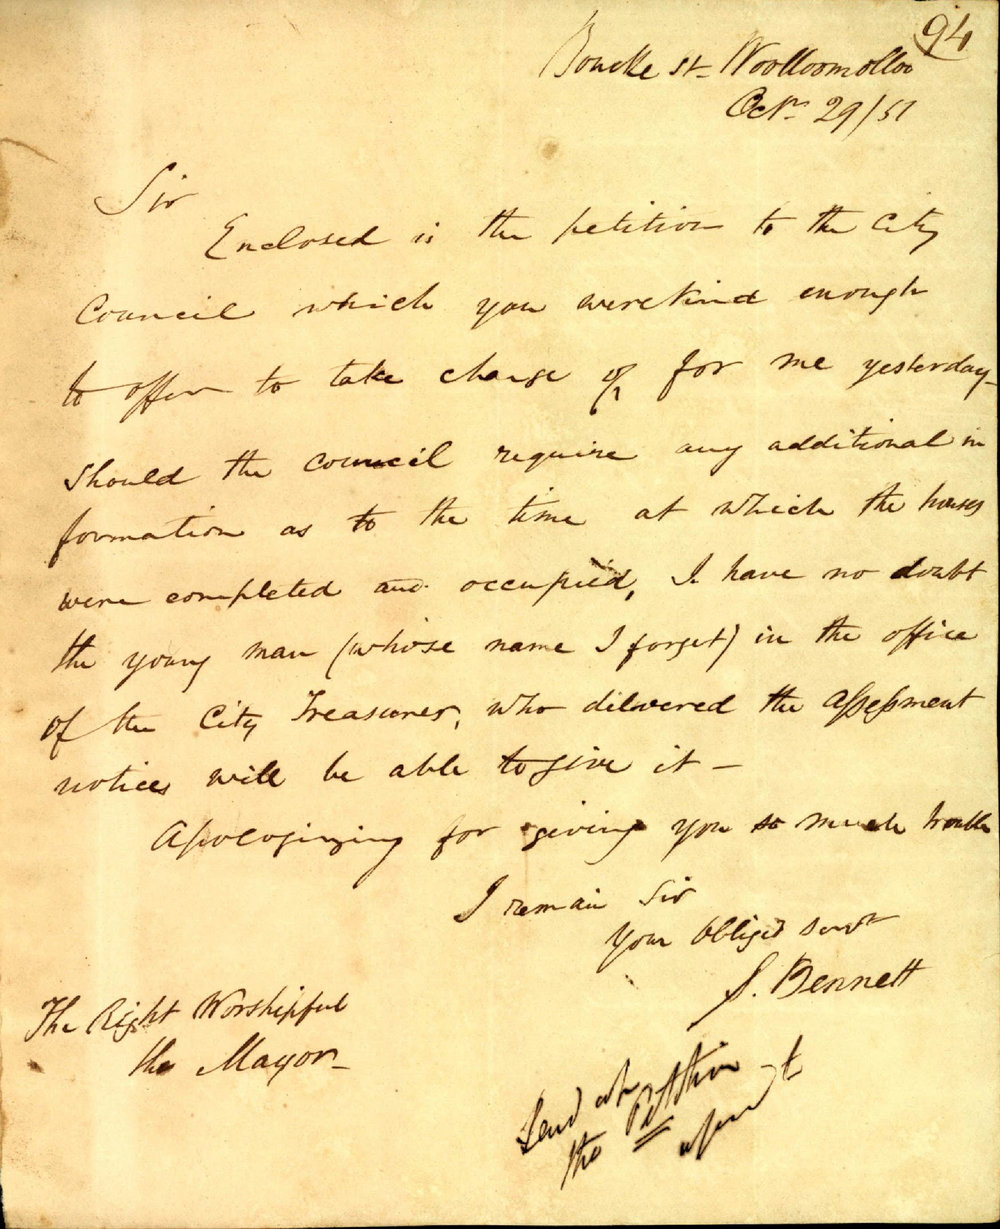 94
Bourke St. Woolloomolloo
Octr. 29/51
Sir
Enclosed is the petition to the City
Council which you were kind enough
to offer to take charge of for me yesterday -
Should the council require any additional in
formation as to the time at which the houses
were completed and occupied, I have no doubt
the young man (whose name I forget) in the office
of the City Treasurer, who dilivered the assessment
notices will be able to give it -
Apologizing for giving you so much trouble
I remain Sir
Your Obliged Servt
S. Bennett
The Right Worshipful
the Mayor -
the Petition